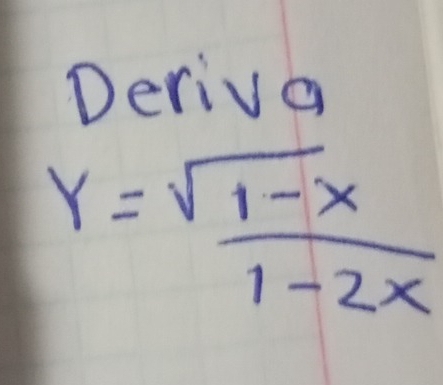 Deriva
Y = √1-x
1-2x